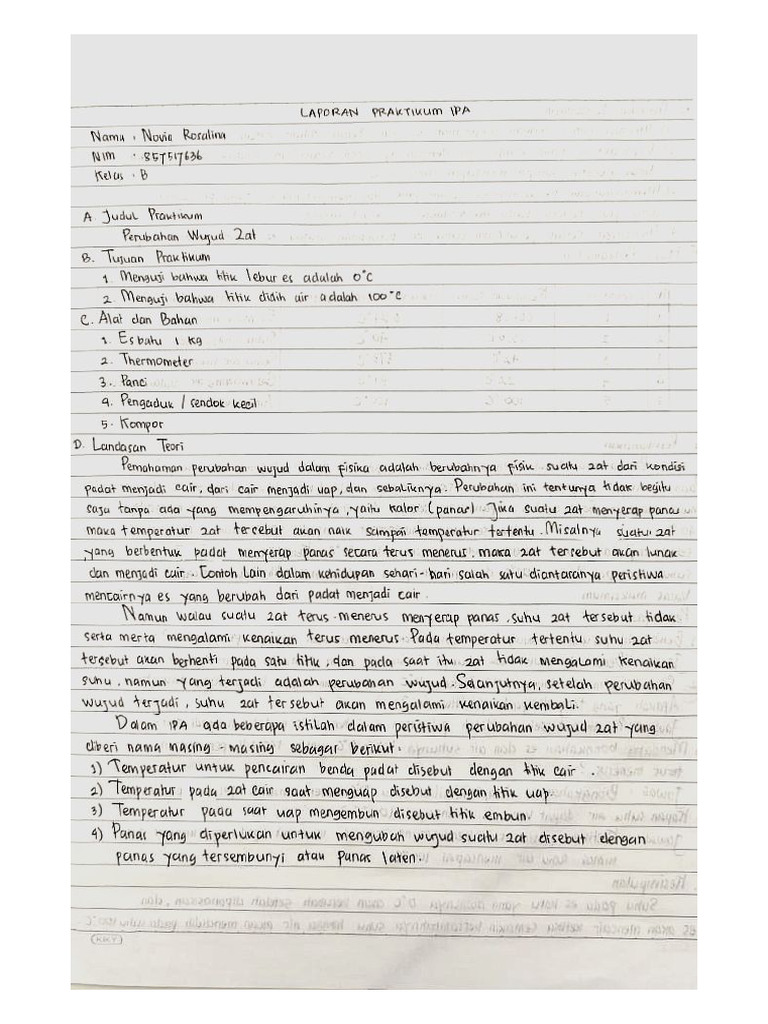 LAPORAN PRAKTIKUM IPA
Nama : Novia Rosalina
NIM : 857517636
Kelas : B
A. Judul Praktikum
Perubahan Wujud Zat
B. Tujuan Praktikum
1. Menguji bahwa titik lebur es adalah 0°C
2. Menguji bahwa titik didih air adalah 100°C
C. Alat dan Bahan
1. Es batu 1 kg
2. Thermometer
3. Panci
4. Pengaduk / sendok kecil
5. Kompor
D. Landasan Teori
Pemahaman perubahan wujud dalam fisika adalah berubahnya fisik suatu zat dari kondisi
padat menjadi cair, dari cair menjadi uap, dan sebaliknya. Perubahan ini tentunya tidak begitu
saja tanpa ada yang mempengaruhinya, yaitu kalor (panas). Jika suatu zat menyerap panas
maka temperatur zat tercebut akan naik sampai temperatur tertentu. Misalnya suatu zat
yang berbentuk padat menyerap panas secara terus menerus, maka zat tersebut akan lunak
dan menjadi cair. Contoh Lain dalam kehidupan sehari-hari salah satu diantaranya peristiwa
mencairnya es yang berubah dari padat menjadi cair.
Namun walau suatu zat terus-menerus menyerap panas, suhu zat tersebut tidak
serta merta mengalami kenaikan terus menerus. Pada temperatur tertentu suhu zat
tersebut akan berhenti pada satu titik, dan pada saat itu zat tidak mengalami kenaikan
suhu, namun yang terjadi adalah perubahan wujud. Selanjutnya, setelah perubahan
wujud terjadi, suhu zat tersebut akan mengalami kenaikan kembali.
Dalam IPA ada beberapa istilah dalam peristiwa perubahan wujud zat yang
diberi nama masing-masing sebagai berikut.
1) Temperatur untuk pencairan benda padat disebut dengan titik cair.
2) Temperatur pada zat cair saat menguap disebut dengan titik uap.
3) Temperatur pada saat uap mengembun disebut titik embun.
4) Panas yang diperlukan untuk mengubah wujud suatu zat disebut dengan
panas yang tersembunyi atau panas laten.
KKY